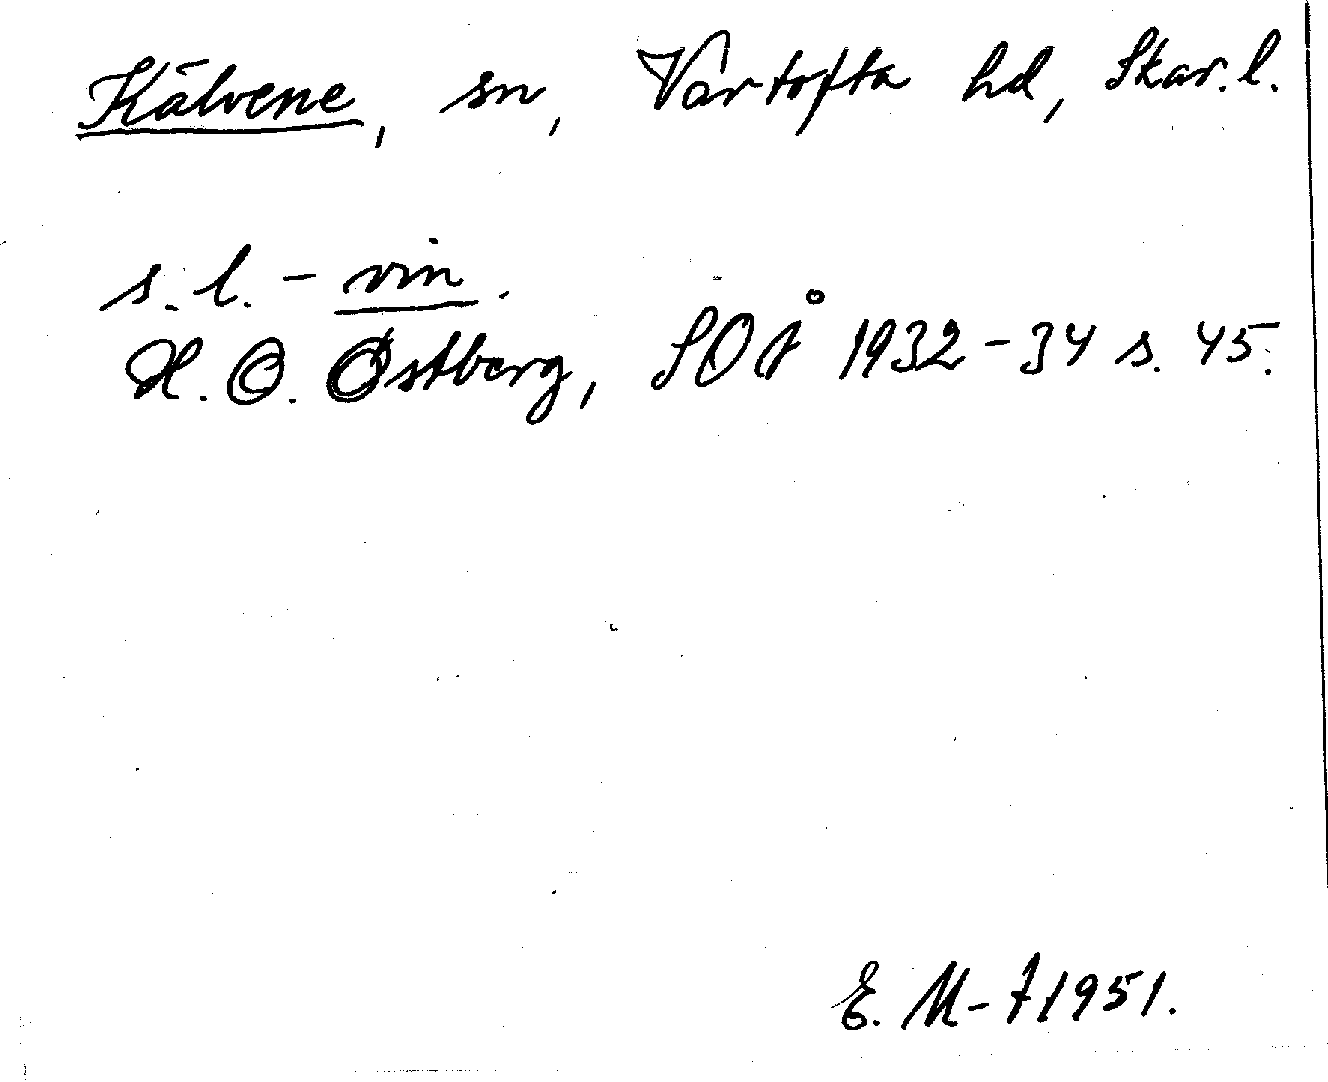 Kälvene, sn, Vartofta hd, Skar. l.
s. l. - vin.
H. O. Østberg, SOÅ 1932-34 s. 45.
E. M-t 1951.